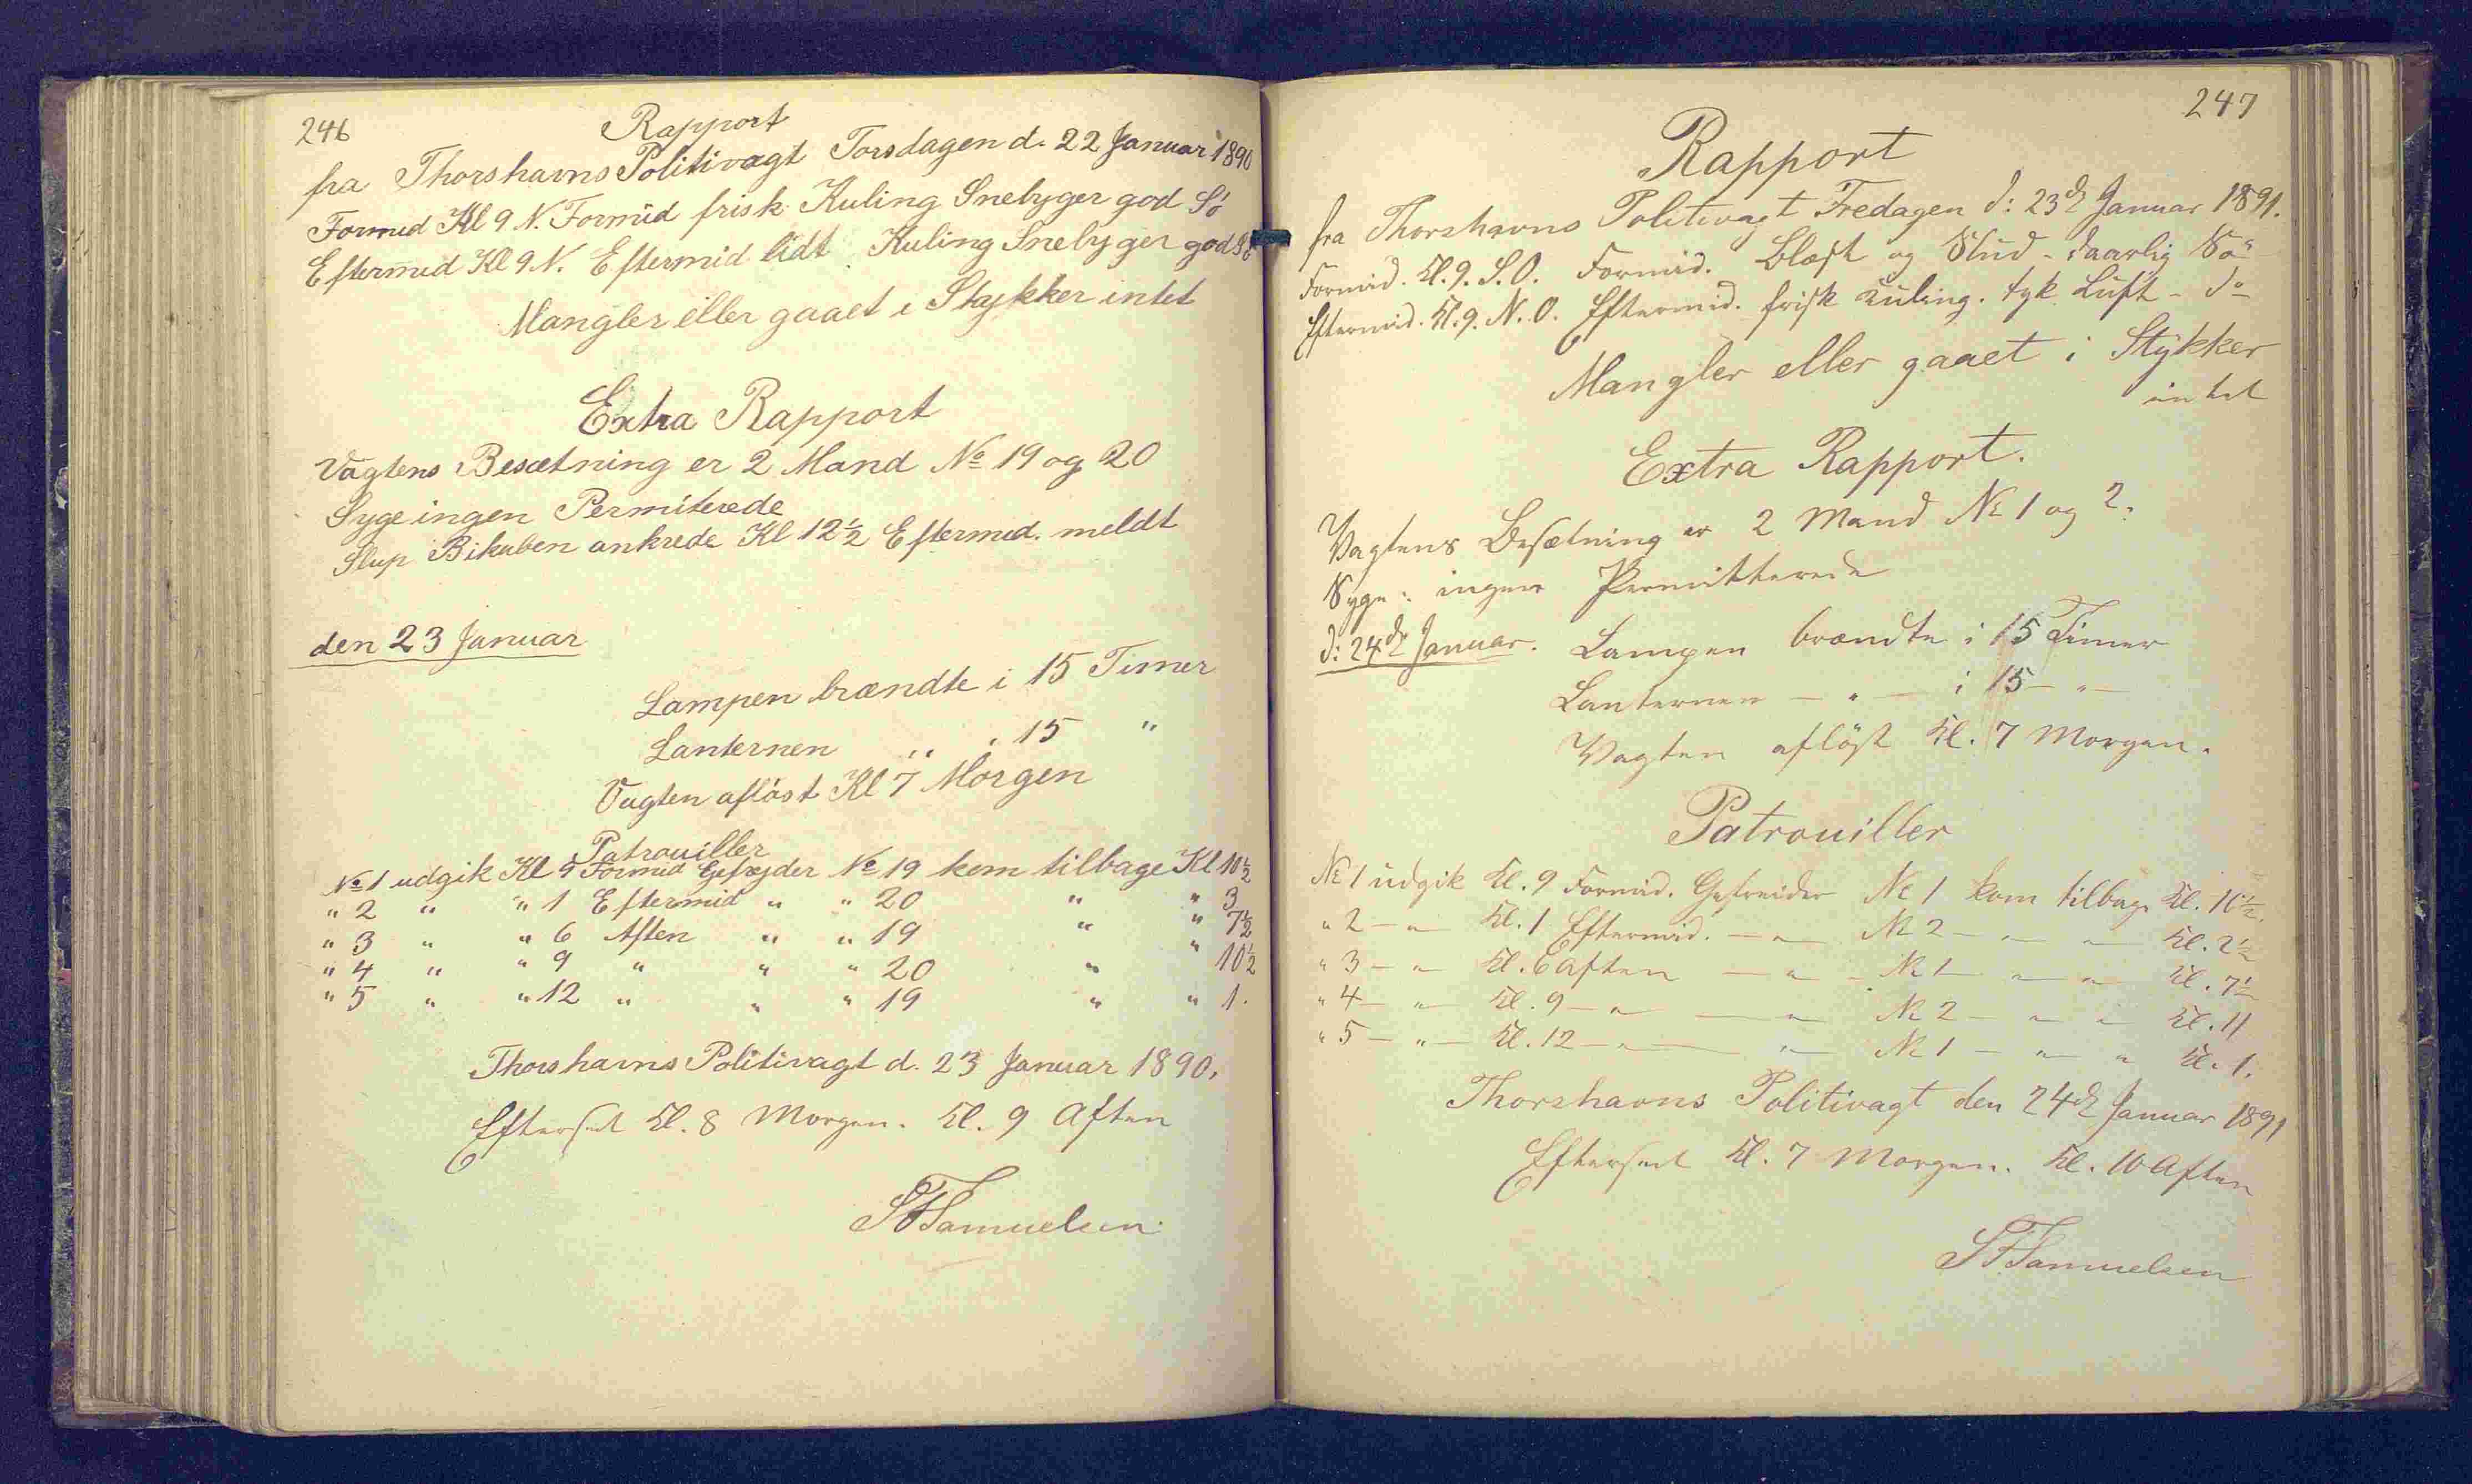 246
Rapport
fra Thorshavns Politivagt Torsdagen d. 22 Januar 1890
Formid Kl 9 N. Formid frisk Kuling Snebyger god Sö
Eftermid Kl 9 N. Eftermid lidt Kuling Snebyger god Sö
Mangler eller gaaet i Stykker intet
Extra Rapport
Vagtens Besætning er 2 Mand No 19 og 20
Syge ingen Permiterede
Slup Bikuben ankrede Kl 12½ Eftermid. meldt
den 23 Januar
Lampen brændte i 15 Timer
Lanternen " " 15 "
Vagten aflöst Kl 7 Morgen
Patrouiller
No 1 udgik Kl 9 Formid Gefrejder No 19 kom tilbage Kl 10½
" 2 " " 1 Eftermid " " 20 " " 3
" 3 " " 6 Aften " " 19 " " 7½
" 4 " " 9 " " " 20 " " 10½
" 5 " " 12 " " " 19 " " 1.
Thorshavns Politivagt d. 23 Januar 1890.
Efterseet Kl. 8 Morgen. Kl. 9 Aften
Samuelsen
247
Rapport
fra Thorshavns Politivagt Fredagen d: 23de Januar 1891.
Formid. Kl. 9. S.O. Formid. Blæst og Slud - daarlig Sö
Eftermid. Kl. 9. N.O. Eftermid. frisk Kuling. tyk Luft - do
Mangler eller gaaet i Stykker
intet
Extra Rapport.
Vagtens Besætning er 2 Mand No 1 og 2.
Syge: ingen Permitterede
d: 24de Januar. Lampen brændte i 15 Timer
Lanternen — " — i 15 — " —
Vagten aflöst Kl. 7 Morgen.
Patrouiller
No 1 udgik Kl. 9 Formid. Gefreider No 1 kom tilbage Kl. 10½.
" 2 — " — Kl. 1 Eftermid. — " — No 2 — " — " — Kl. 2½
" 3 — " — Kl. 6 Aften — " — No 1 — " — " — Kl. 7½
" 4 — " — Kl. 9 — " — — " — No 2 — " — " — Kl. 11
" 5 — " — Kl. 12 — " — " — No 1 — " — " Kl. 1.
Thorshavns Politivagt den 24de Januar 1891
Efterseet Kl. 7 Morgen. Kl. 10 Aften
Samuelsen